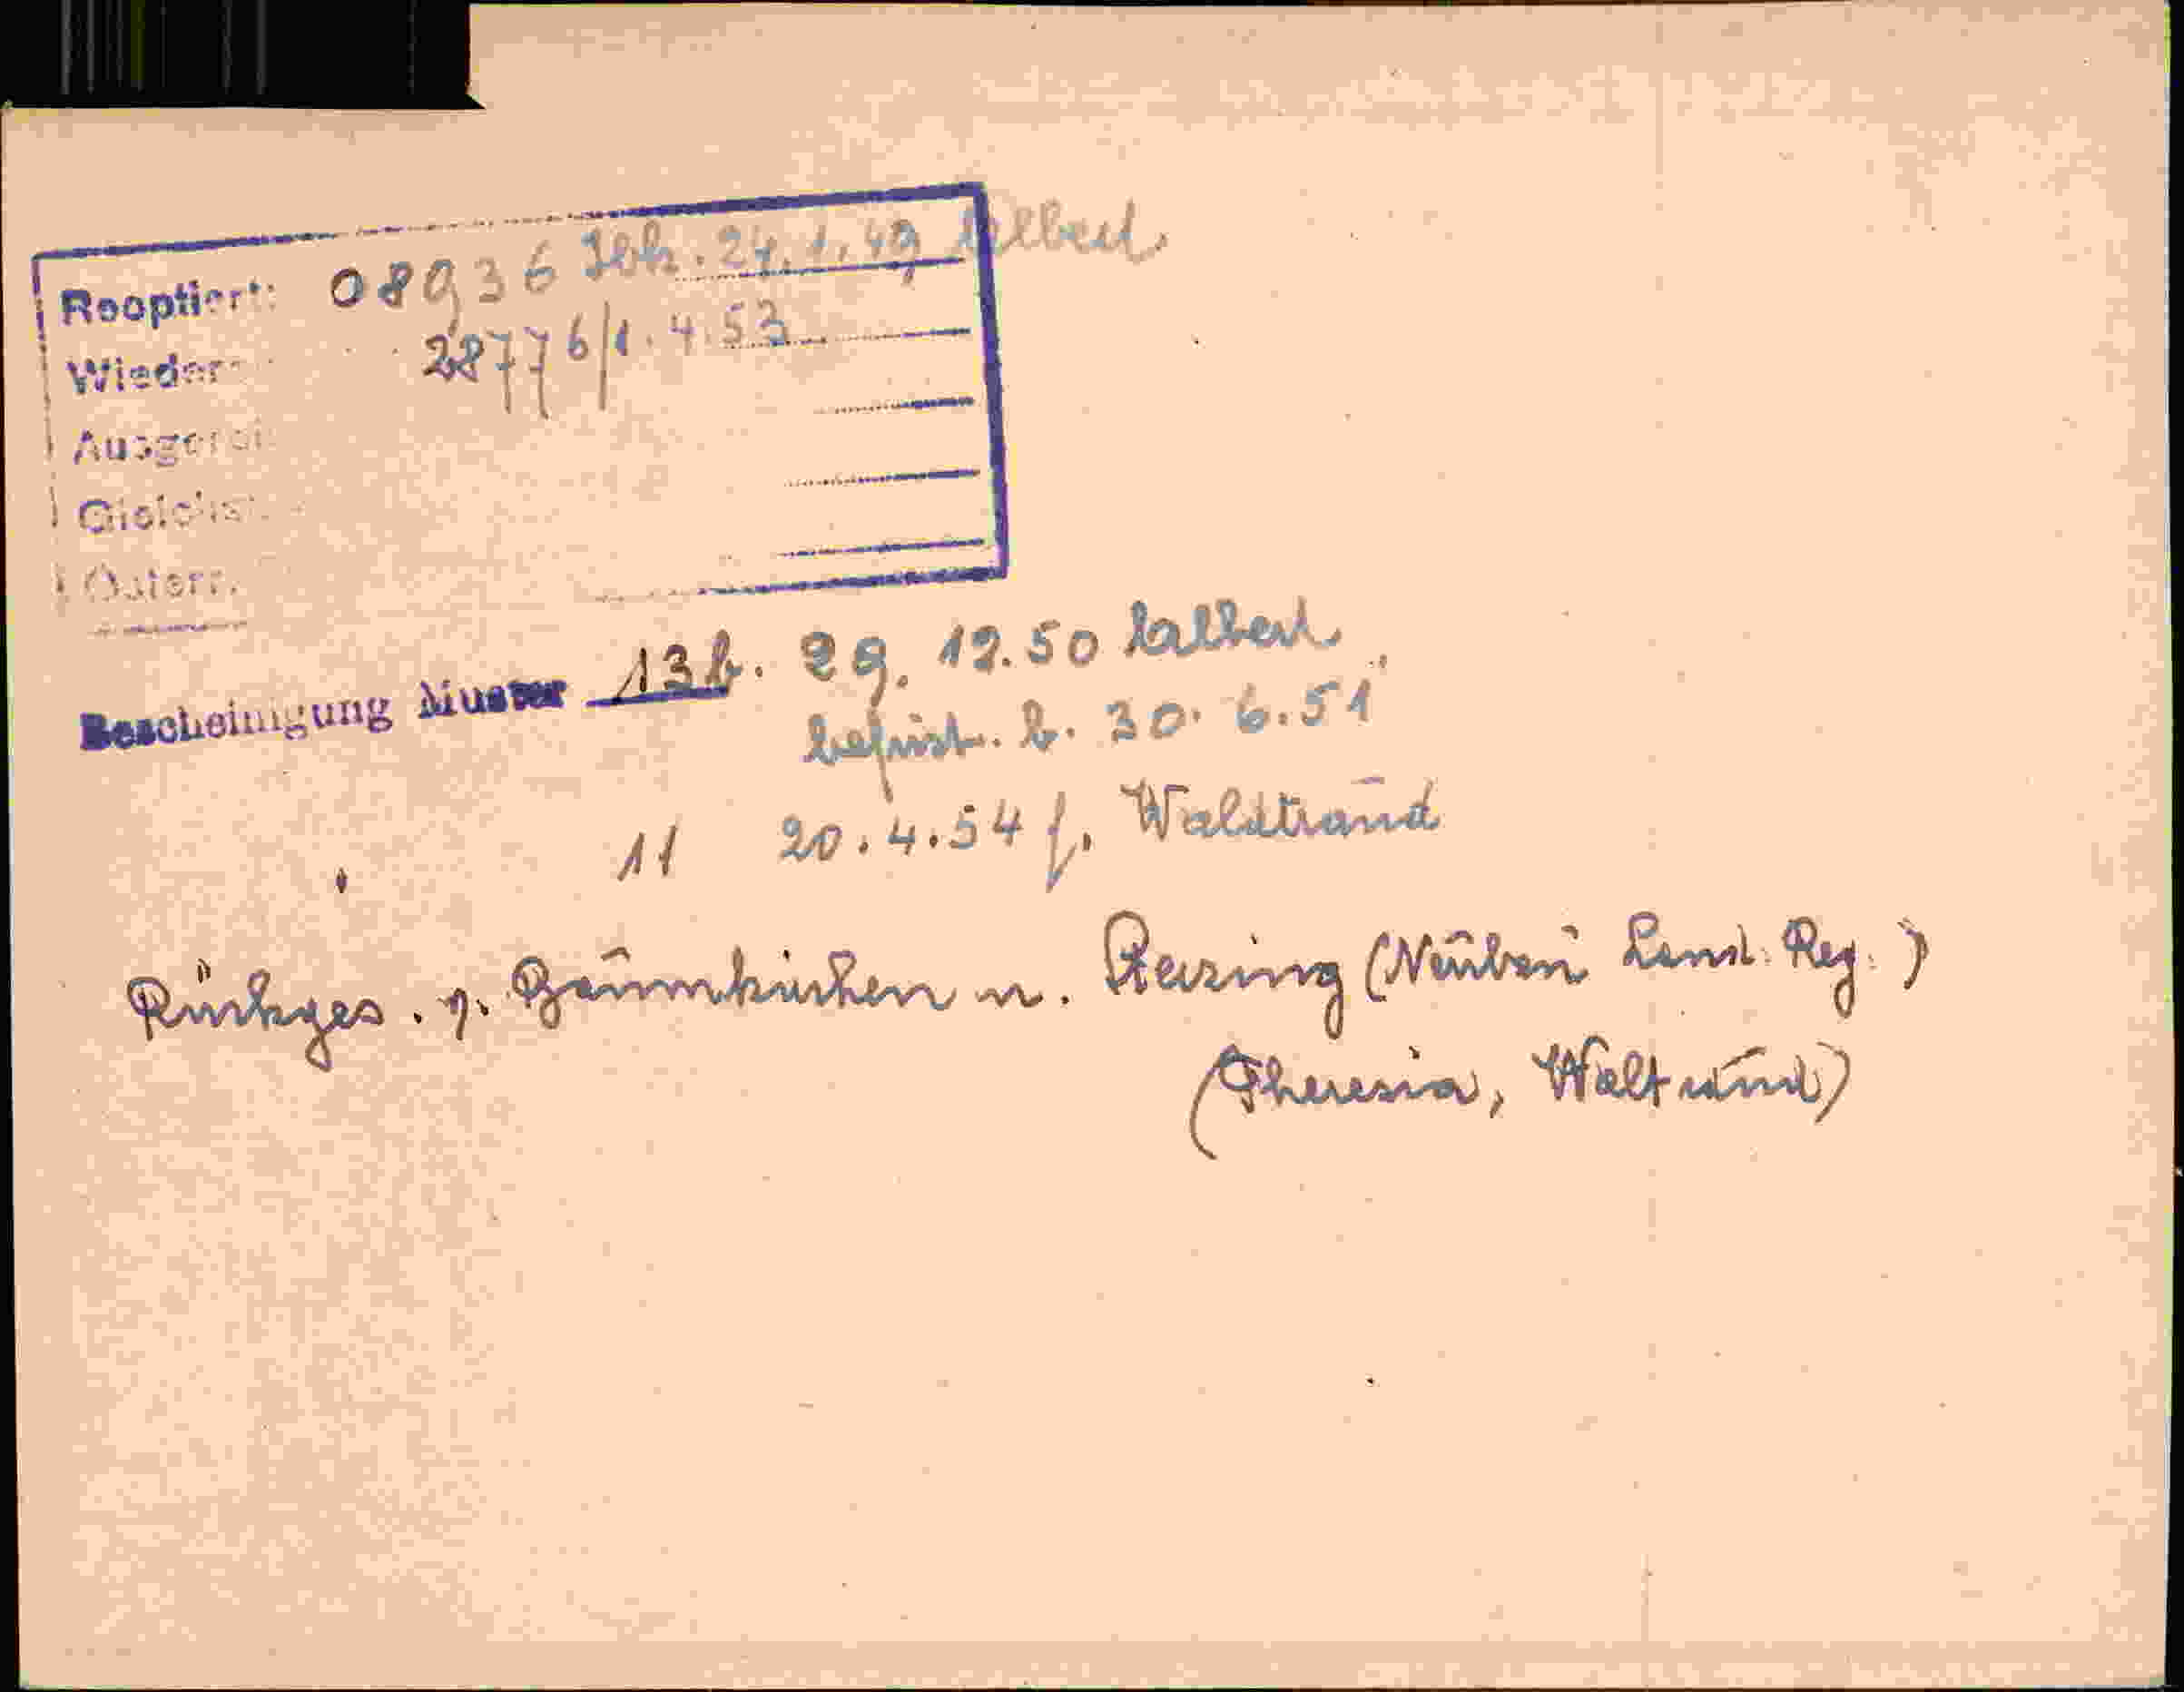 Reoptiert: 08936 Ibk. 24.1.49 Albert
Wieder 28776/1.4.53
Ausgerei
Gleichst
Österr.
Bescheinigung Muster 13 b. 29. 12. 50 Albert
befrist. b. 30. 6. 51
11 20. 4. 54 f. Waldtraud
Rückges. v. Baumkirchen n. (Neubau Land. Reg.)
(Theresia, Waltraud)